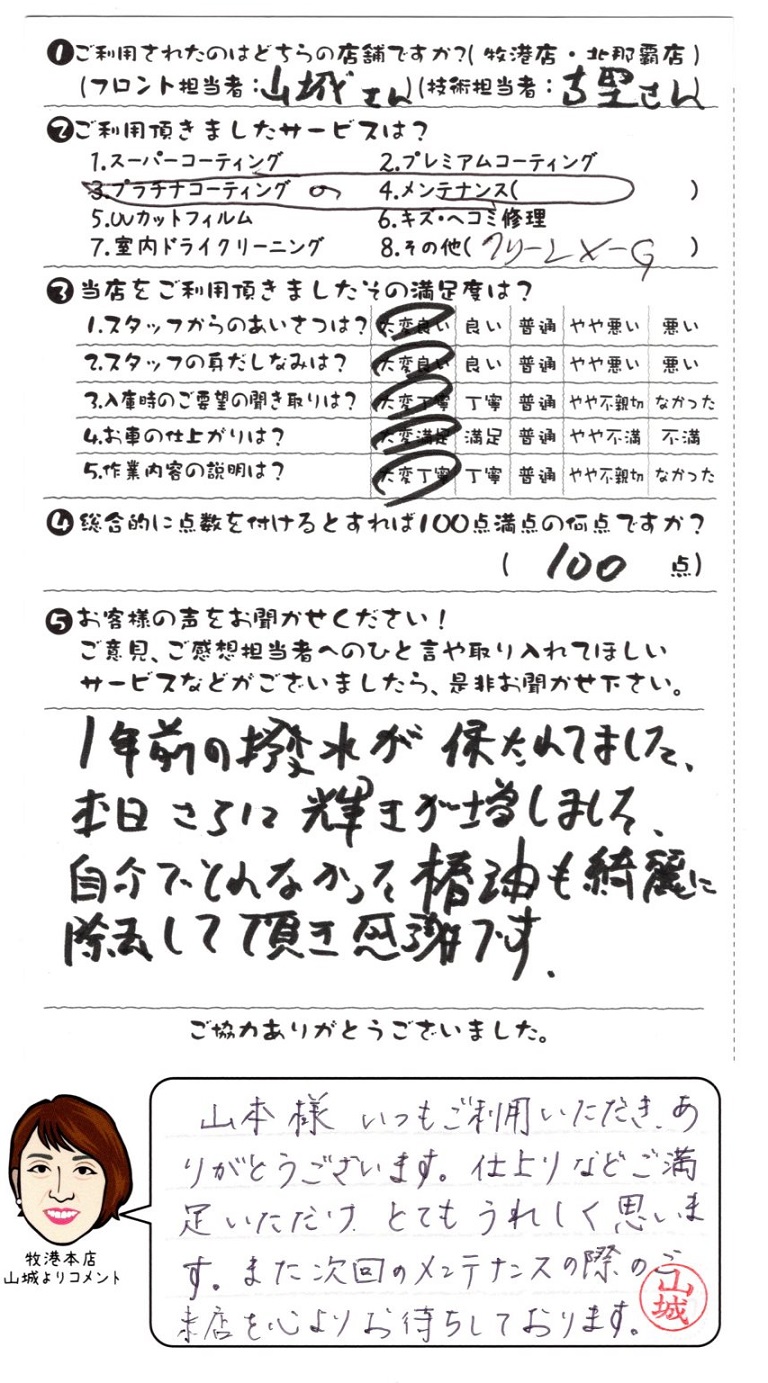 ❶ご利用されたのはどちらの店舗ですか?(牧港店・北那覇店)
(フロント担当者:山城さん)(技術担当者:吉里さん
❷ご利用頂きましたサービスは?
1.スーパーコーティング 2.プレミアムコーティング
3.プラチナコーティング の 4.メンテナンス( )
5.UVカットフィルム 6.キズ・ヘコミ修理
7.室内ドライクリーニング 8.その他( )
❸当店をご利用頂きましたその満足度は?
1.スタッフからのあいさつは? 大変良い 良い 普通 やや悪い 悪い
2.スタッフの身だしなみは? 大変良い 良い 普通 やや悪い 悪い
3.入庫時のご要望の聞き取りは? 大変丁寧 丁寧 普通 やや不親切 なかった
4.お車の仕上がりは? 大変満足 満足 普通 やや不満 不満
5.作業内容の説明は? 大変丁寧 丁寧 普通 やや不親切 なかった
❹総合的に点数を付けるとすれば100点満点の何点ですか?
( 100 点)
❺お客様の声をお聞かせください!
ご意見、ご感想担当者へのひと言や取り入れてほしい
サービスなどがございましたら、是非お聞かせ下さい。
1年前の撥水が保たれてました、
本日さらに輝きが増しました、
自分でとれなかった椿油も綺麗に
除去して頂き感謝です.
ご協力ありがとうございました。
山本様 いつもご利用いただき、あ
りがとうございます。仕上りなどご満
足いただけ、とてもうれしく思いま
す。また次回のメンテナンスの際のご
来店を心よりお待ちしております。
山城
牧港本店
山城よりコメント